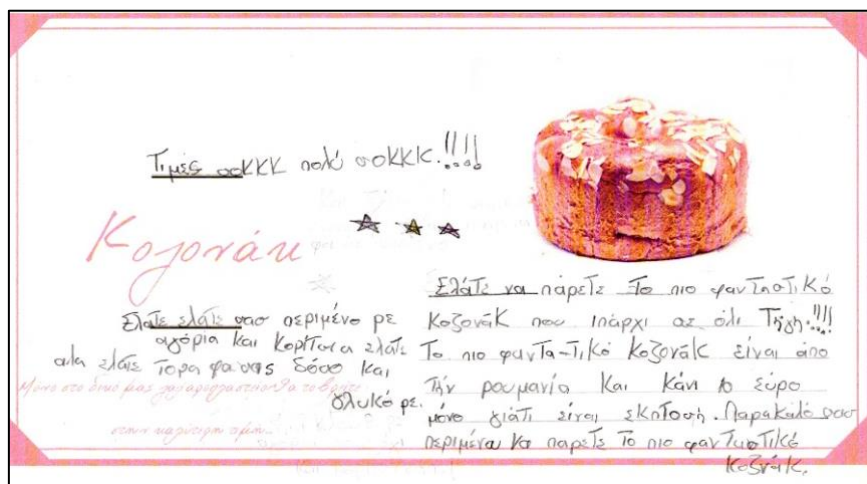 Τιμές σοκκκ πολύ σοκκκ.!!!!
Κοζονάκ
Ελάτε ελάτε σασ περιμένο ρε
αγόρια και κορίτσια ελάτε
ελάτε τορα φαναs δόσο και
γλυκό ρε.
Μόνο στο δικό μας ζαχαροπλαστείο θα το βρήτε
στην καλύτερη τιμή..
Ελάτε να πάρετε το πιο φανταστικό
κοζονάκ που ιπάρχι σε όλι Τηγη.!!!!
Το πιο φαντα-τικό κοζονάκ είναι άπο
τήν ρουμανία και κάνι 10 εύρο
μόνο γιάτι είναι εκπτοσή. Παρακαλό σασ
περιμένα να παρετε το πιο φανταστικό
κοζνάκ.